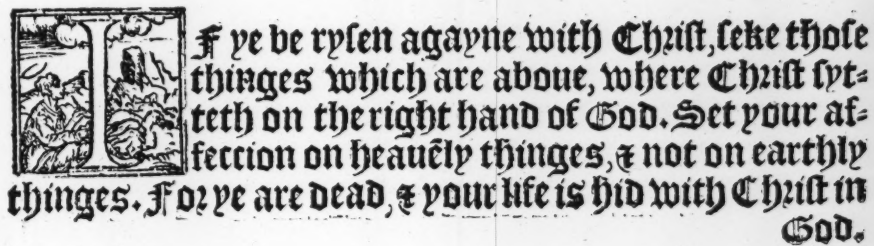 IF ye be rysen agayne with Christ, seke those
thinges which are aboue, where Christ syt=
teth on the right hand of God. Set your af=
feccion on heauẽly thinges, & not on earthly
thinges. For ye are dead, & your life is hid with Christ in
God.